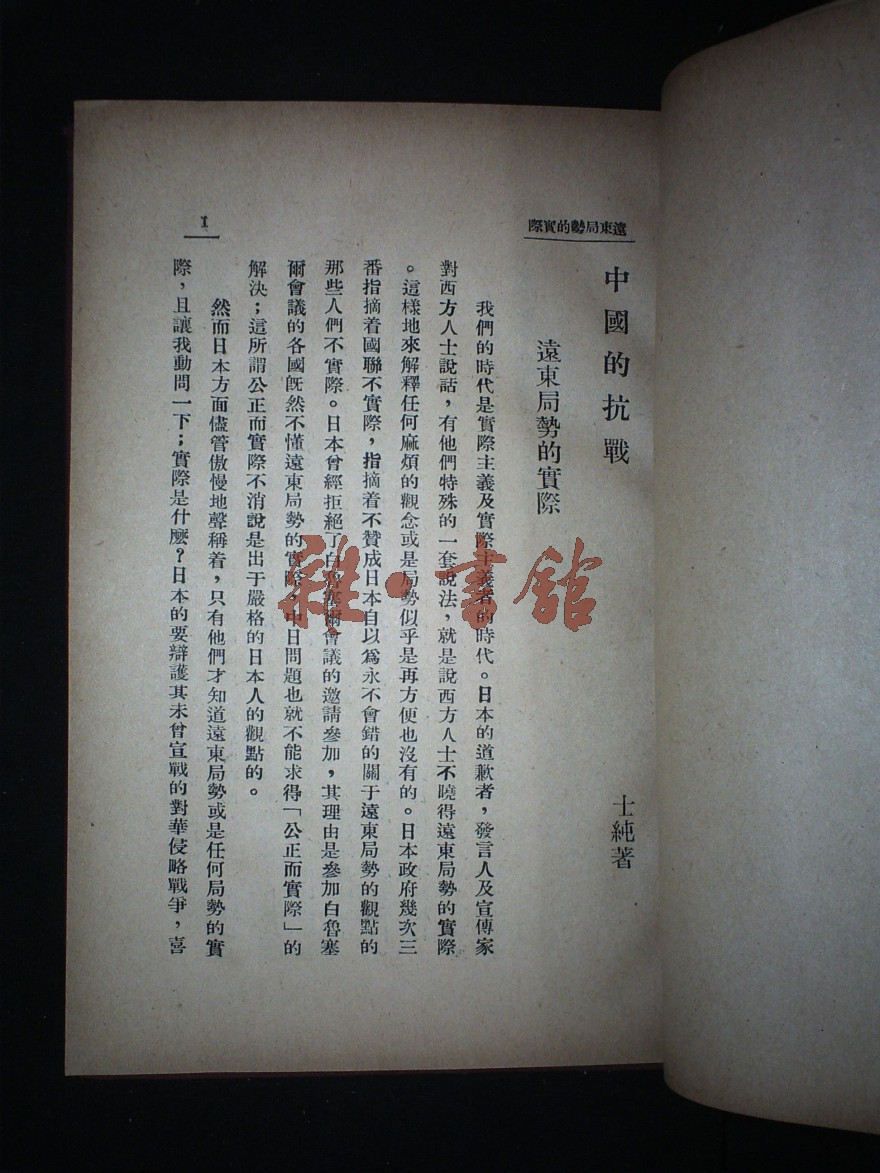 遠東局勢的實際
中國的抗戰
士純著
遠東局勢的實際
我們的時代是實際主義及實際主義者的時代。日本的道歉者，發言人及宣傳家
對西方人士說話，有他們特殊的一套說法，就是說西方人士不曉得遠東局勢的實際
。這樣地來解釋任何麻煩的觀念或是局勢似乎是再方便也沒有的。日本政府幾次三
番指摘着國聯不實際，指摘着不贊成日本自以爲永不會錯的關于遠東局勢的觀點的
那些人們不實際。日本曾經拒絕了白魯塞爾會議的邀請參加，其理由是參加白魯塞
爾會議的各國旣然不懂遠東局勢的實際，中日問題也就不能求得「公正而實際」的
解決；這所謂公正而實際不消說是出于嚴格的日本人的觀點的。
然而日本方面儘管傲慢地聲稱着，只有他們才知道遠東局勢或是任何局勢的實
際，且讓我動問一下；實際是什麼？日本的要辯護其未曾宣戰的對華侵略戰爭，喜
1
雜·書館